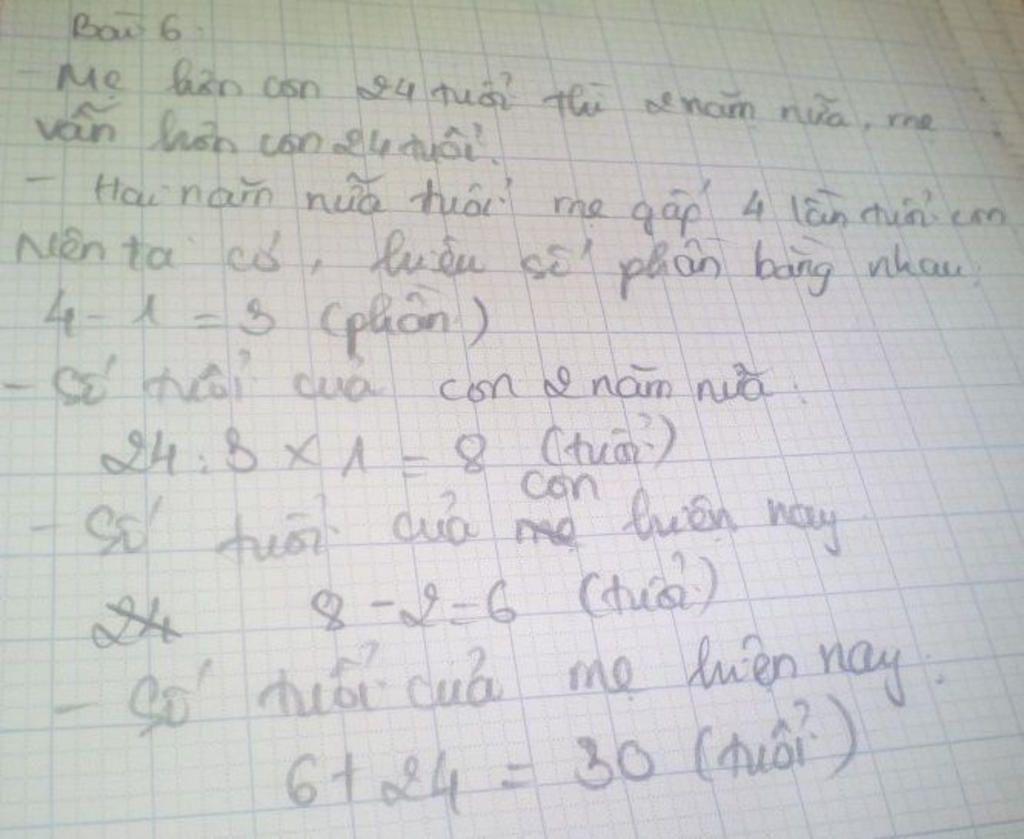 Bài 6.
- Mẹ hơn con 24 tuổi thì 2 năm nữa, mẹ
vẫn hơn con 24 tuổi.
- Hai năm nữa tuổi mẹ gấp 4 lần tuổi con
Nên ta có, hiệu số phần bằng nhau:
4 - 1 = 3 (phần)
- Số tuổi của con 2 năm nữa.
24 : 3 x 1 = 8 (tuổi)
con
- Số tuổi của mẹ hiện nay
24 8 - 2 = 6 (tuổi)
- Số tuổi của mẹ hiện nay.
6 + 24 = 30 (tuổi)